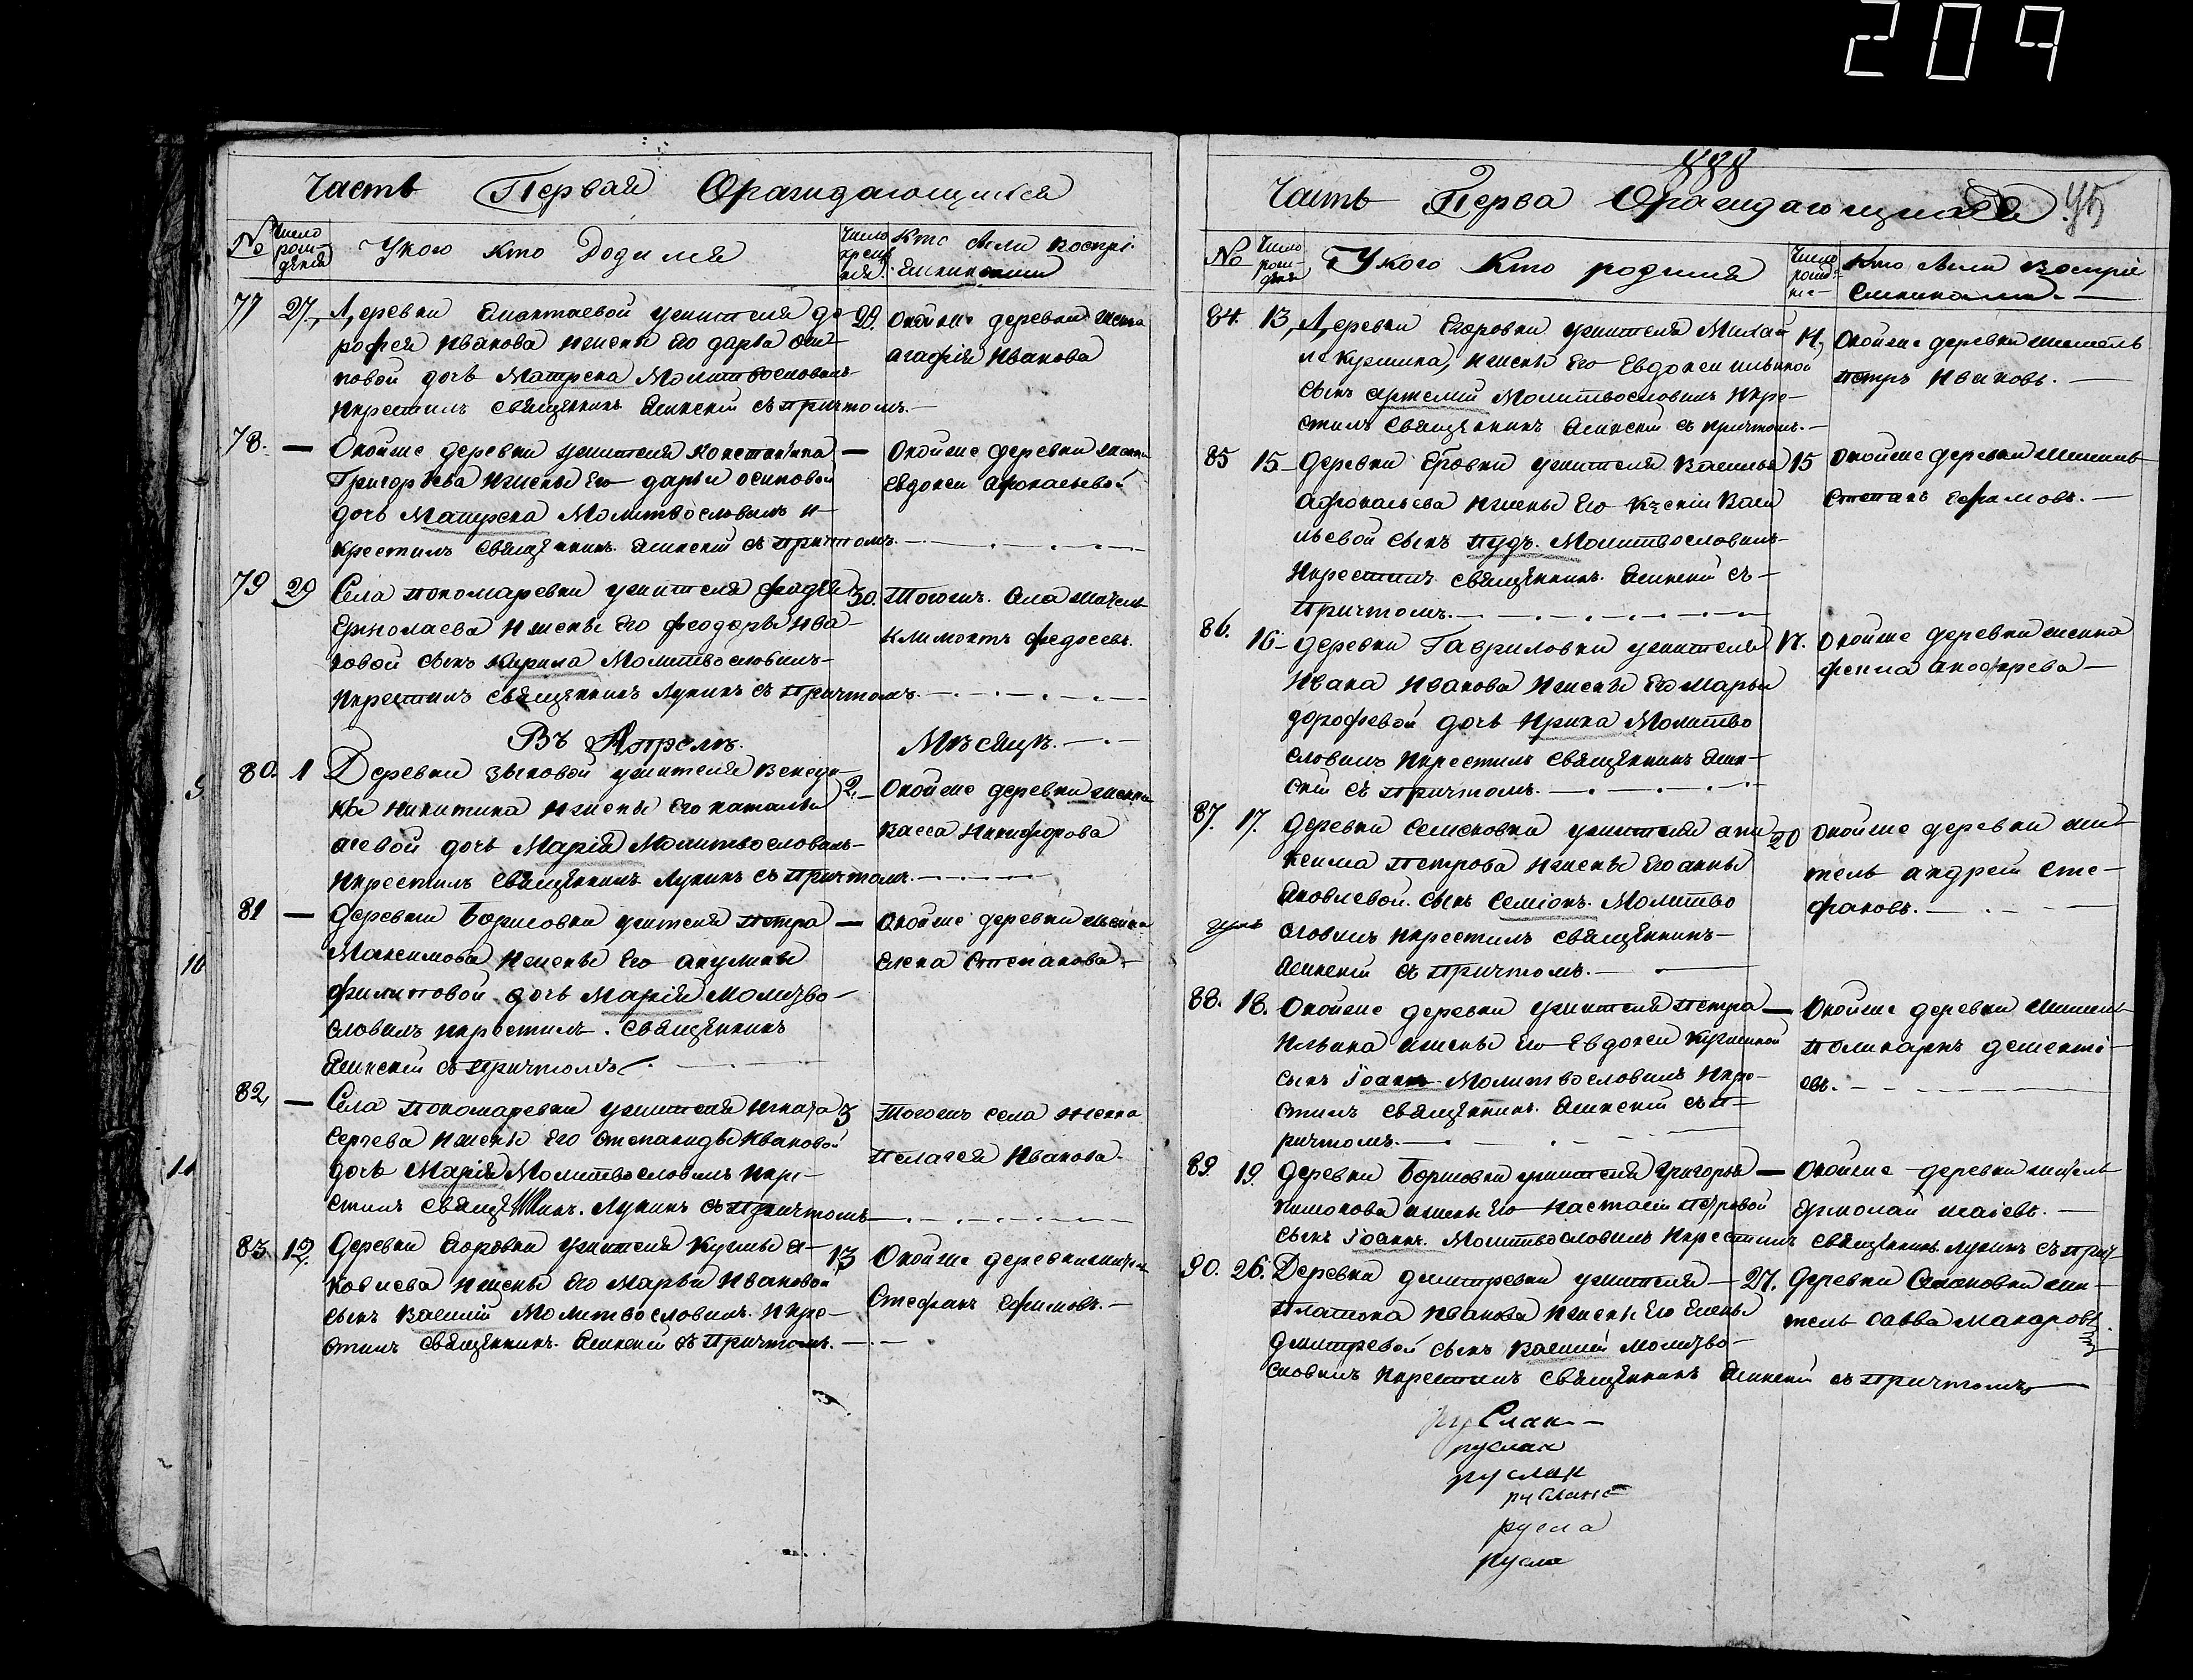 209
Часть Первая Ораждающихся
№
Число рож-дения
У кого кто Родился
Число креще-ния
Кто были воспрі-
емниками
77 27. Деревни жителя До-
рофея Иванова и жены Его дарьи Оси-
повой дочь Матрена Молитвословилъ
и крестилъ священникъ Ясинскій съ причтомъ.
29. Оной же деревни женка
агафія Иванова
78. — Оной же деревни жителя Константина
Григорьева и жены Его дарьи осиповой
дочь Матрена Молитвословилъ и
крестилъ священникъ Ясинскій съ причтомъ.
— Оной же деревни женка
Евдокеи Афонасьевой
79 29 Села пономаревки жителя фадея
Ермолаева и жены Его феодоры Ива-
новой сынъ Кирила Молитвословилъ
и крестилъ священникъ Лукинъ съ причтомъ.
30. Тогожъ села житель
Климонтъ федосеевъ.
Въ Апреле Мѣсяцѣ.
80. 1 Деревни Зыковой жителя Венедик-
та Никитина и жены Его натальи
дочь Марія Молитвословилъ
и крестилъ священникъ Лукинъ съ причтомъ.
2. Оной же деревни женка
Васса Никифорова
81 — деревни Борисовки жителя Петра
Максимова и жены Его акулины
филиповой дочь Марія Молитво-
словилъ и крестилъ священникъ
Ясинскій съ причтомъ.
— Оной же деревни женка
Елена Степанова.
82, — Села пономаревки жителя Игната
Сергеева и жены Его Степаниды Ивановой
дочь Марія Молитвословилъ и кре-
стилъ священникъ Лукинъ съ причтомъ
3 Тогожъ села женка
Пелагея Иванова.
83. 12. Деревни Егоровки жителя Кузмы я-
ковлева и жены Его Марьи Ивановой
сынъ Василій Молитвословилъ и кре-
стилъ священникъ Ясинскій съ причтомъ.
13 Оной же деревни житель
Стефанъ Ефимовъ.
Часть Перва Ораждающихся 95
№
Число рож-дения
У кого Кто родился
Кто были воспріе
емниками
84. 13, Деревни Егоровки жителя Михай
ло Кузмина, и жены Его Евдокеи ильиной
сынъ артемій Молитвословилъ и кре-
стилъ священникъ Ясинскій съ причтомъ.
14, Оной же деревни житель
Петръ Ивановъ.
85 15 деревни Еговки жителя Василья
Афонасьева и жены Его Ксеніи Васи
льевой сынъ Пудъ. Молитвословилъ
и крестилъ священникъ Ясинскій съ
Причтомъ.
15 Оной же деревни житель
Степанъ Ефимовъ.
86. 16 деревни Гавриловки жителя
Ивана Иванова и жены Его Марьи
дорофевой дочь Ирина Молитво
словилъ и крестилъ священникъ Ясин-
скій съ Причтомъ.
17. Оной же деревни женка
фекла
87. 17. деревни Семеновки жителя
ксима Петрова и жены Его анны
Яковлевой сынъ Семіонъ. Молитво
словилъ и крестилъ священникъ
Ясинскій съ Причтомъ.
20 Оной же деревни жи
тель андрей Сте-
фановъ.
88. 18. Оной же деревни жителя Петра
Ильина и жены Его Евдокеи Кузминой
сынъ Іоаннъ Молитвословилъ и кре-
стилъ священникъ Ясинскій съ п
ричтомъ.
— Оной же деревни житель
Поликарпъ дементі-
евъ.
89. 19. деревни Борисовки жителя Григорья
и жены Его Настасіи Петровой
сынъ Іоаннъ. Молитвословилъ и крестилъ священникъ Лукинъ съ прич
— Оной же деревни житель
Ермолай исаіевъ.
90. 26. Деревни дмитревки жителя
Платона Иванова и жены Его Елены
дмитревой сынъ Василій молитво-
словилъ и крестилъ священникъ Ясинскій съ причтомъ
27. деревни жи-
тель Савва Макаровъ.
руслан
руслан
руслан
русланъ
русла
русла